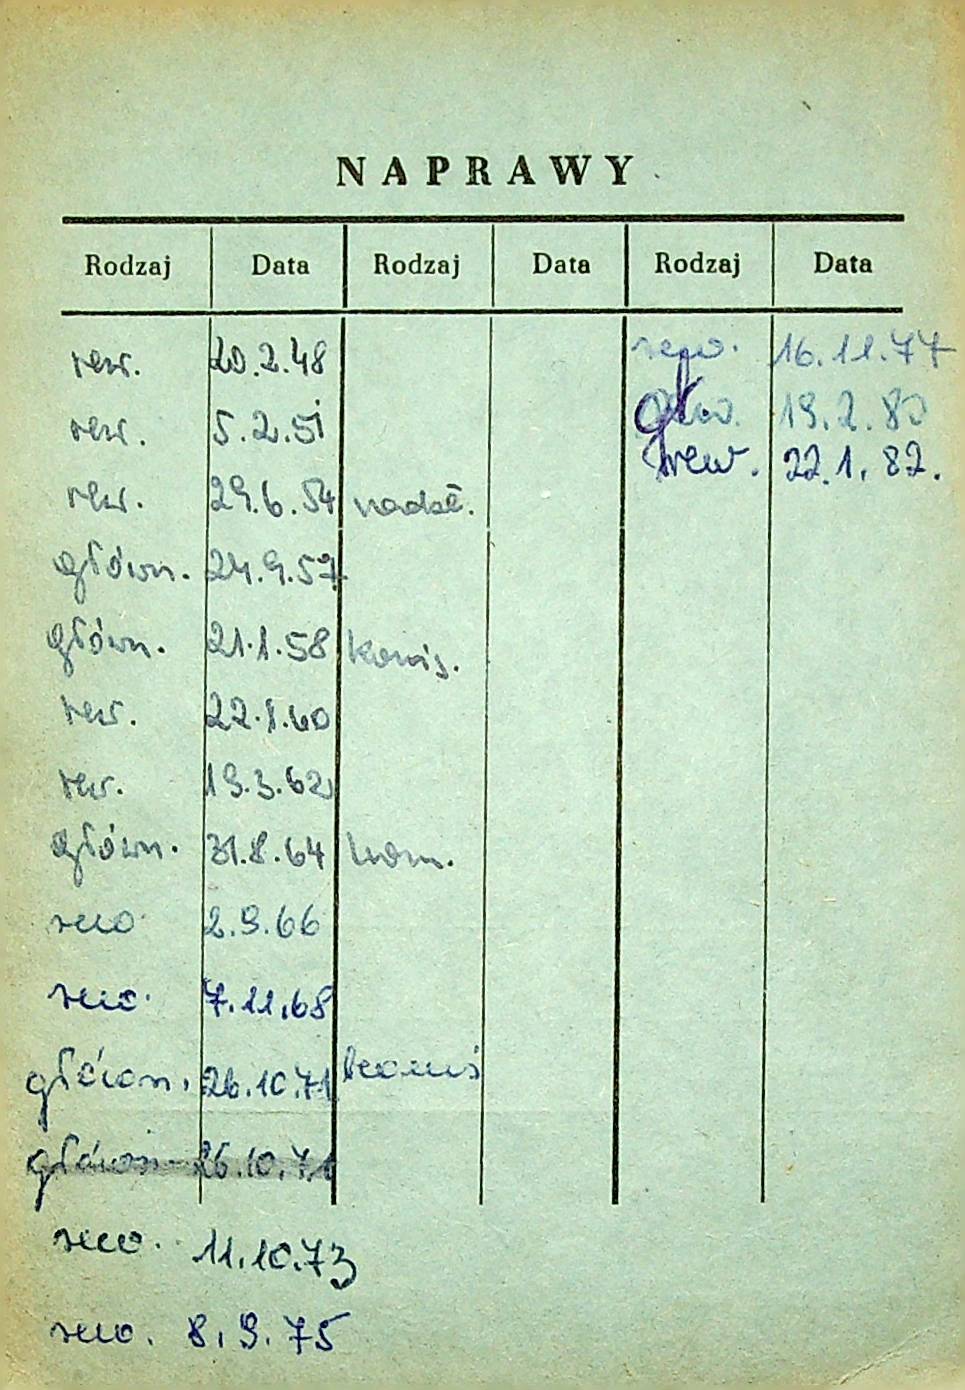 NAPRAWY
Rodzaj Data Rodzaj Data Rodzaj Data
rew. 20.2.48 rew. 16.11.77
rew. 5.2.51 głw. 19.2.80
rew. 22.1.82.
rew. 29.6.54 nadzł.
główn. 24.9.57
główn. 21.1.58 komis.
rew. 22.1.60
rew. 19.3.62
główn. 31.8.64 kom.
rew 2.9.66
rew. 7.11.68
główn. 26.10.71 komis
główn 26.10.71
rew. 11.10.73
rew. 8.9.75